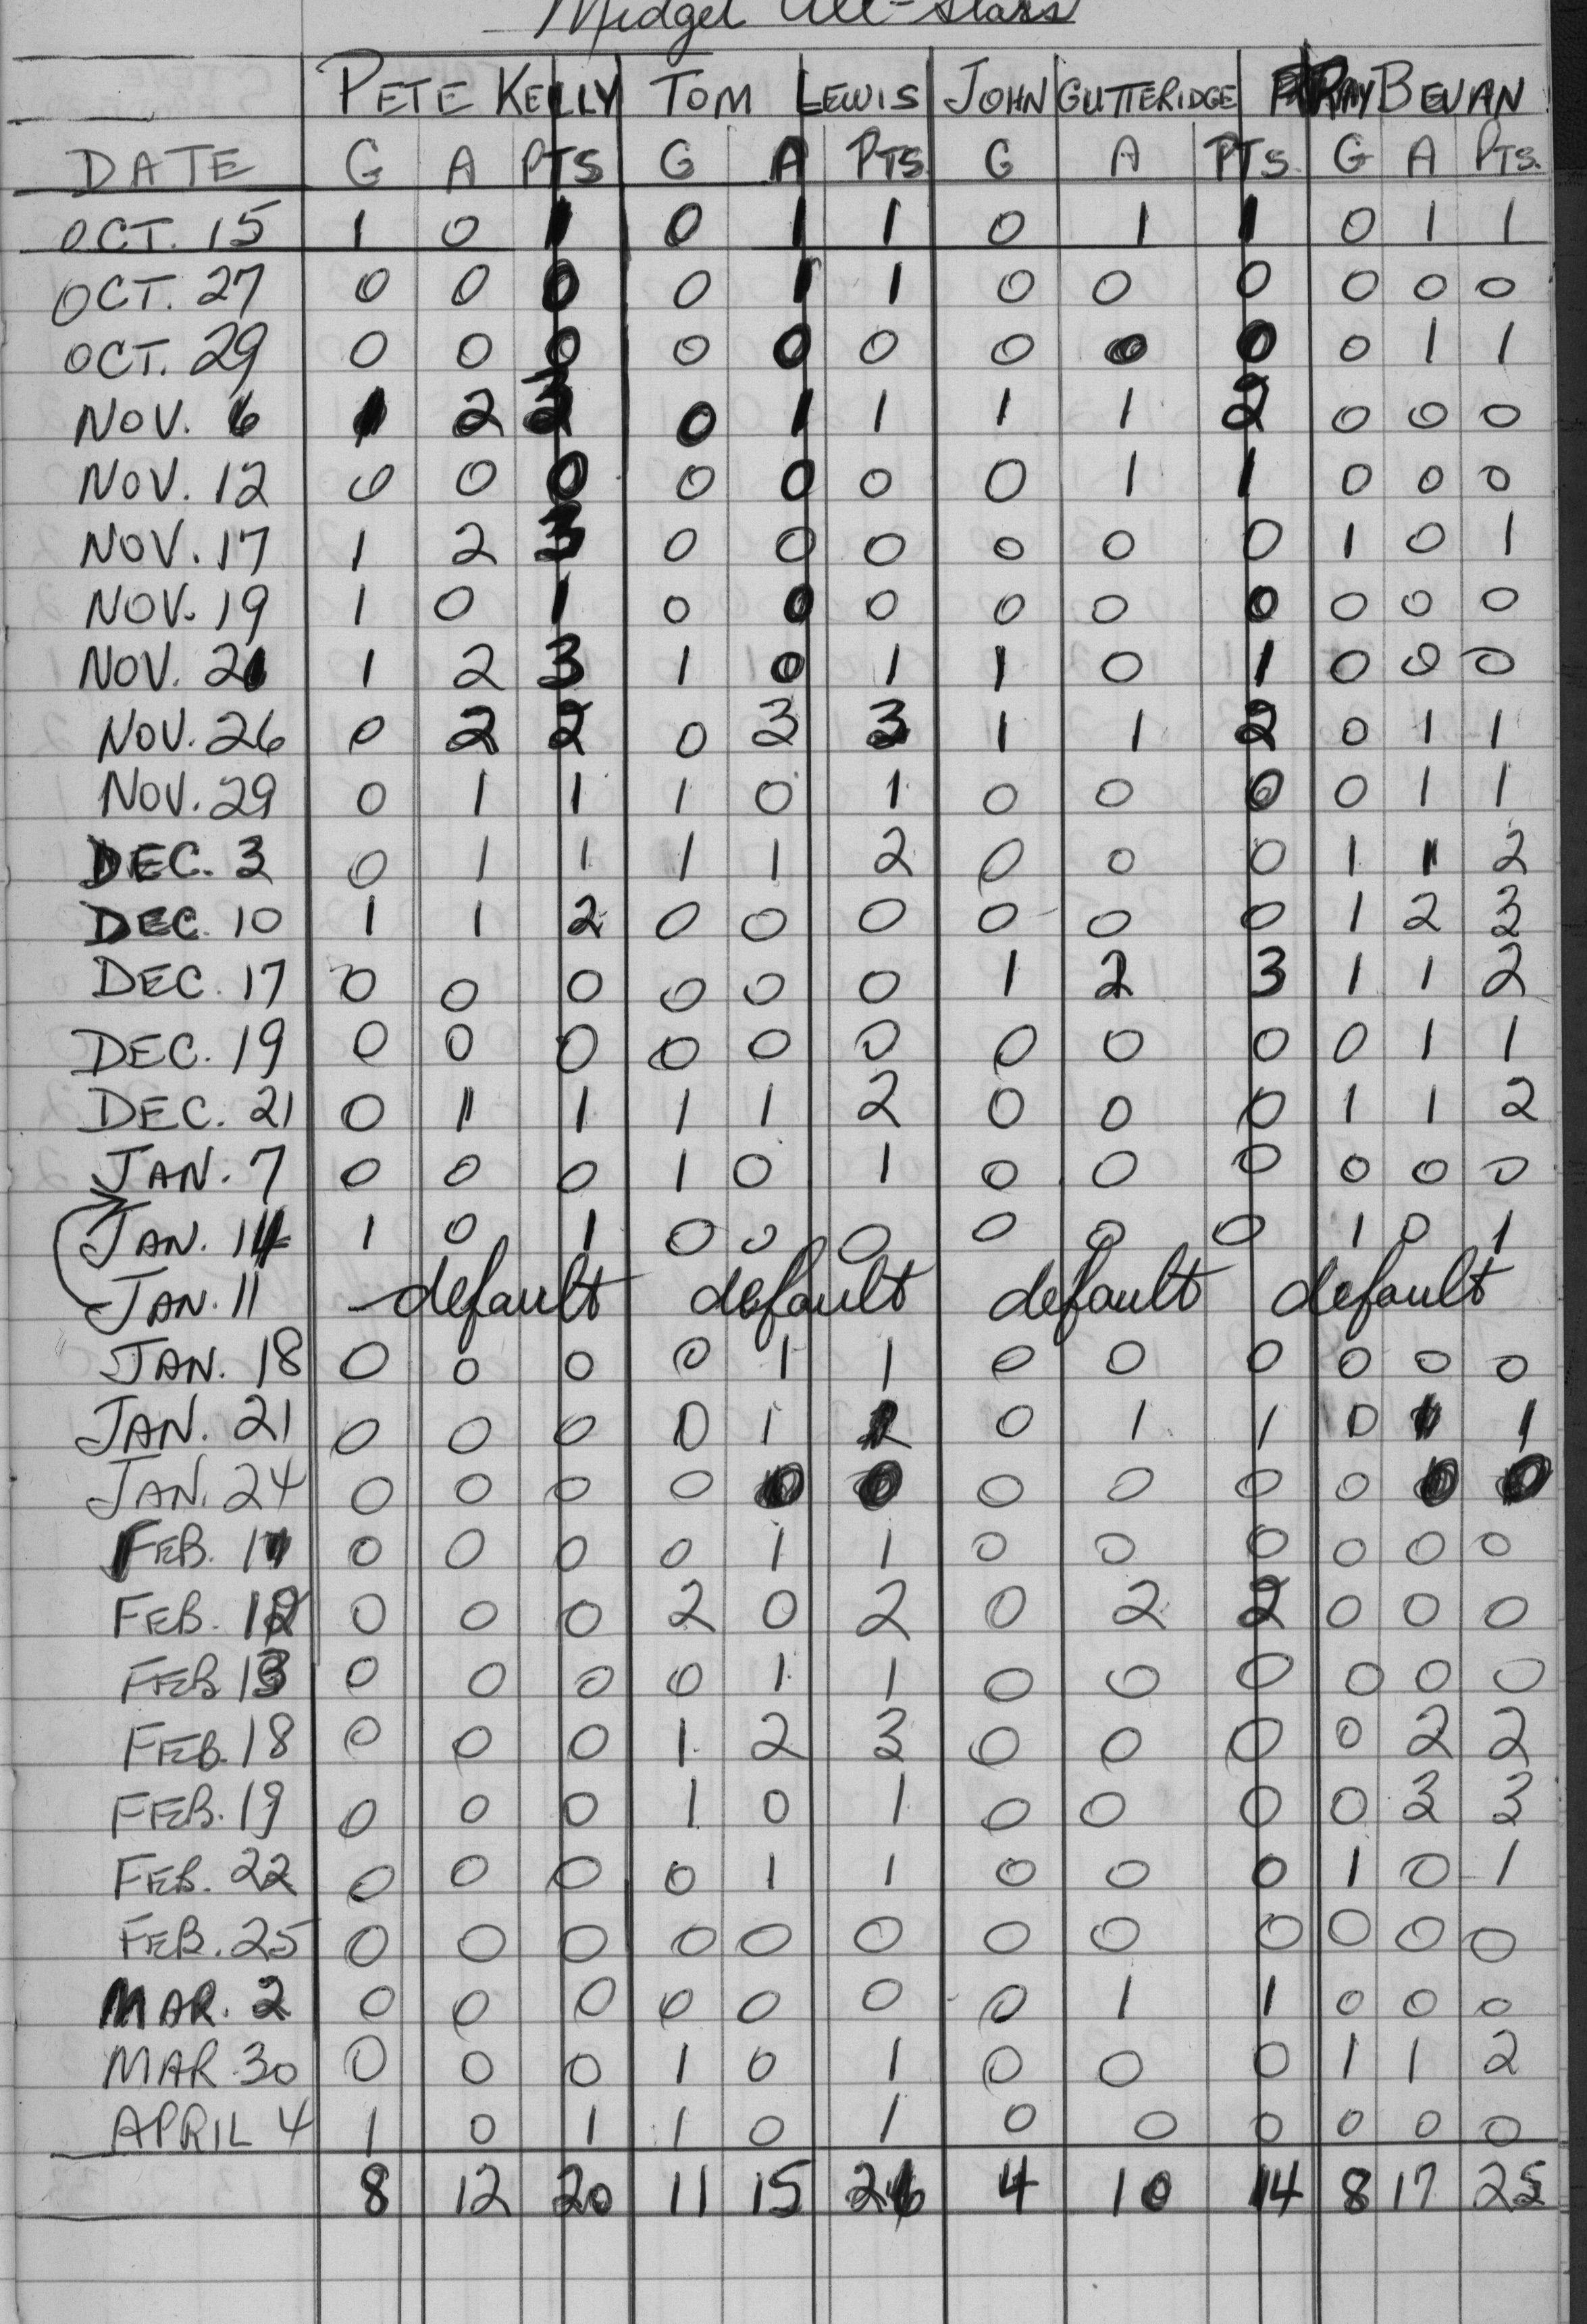 Midget All-Stars
PETE KELLY TOM LEWIS JOHN GUTTERIDGE RAY BEVAN
DATE G A PTS G A PTS G A PTS. G A PTS.
OCT. 15 1 0 1 0 1 1 0 1 1 0 1 1
OCT. 27 0 0 0 0 1 1 0 0 0 0 0 0
OCT. 29 0 0 0 0 0 0 0 0 0 0 1 1
NOV. 6 1 2 3 0 1 1 1 1 2 0 0 0
NOV. 12 0 0 0 0 0 0 0 1 1 0 0 0
NOV. 17 1 2 3 0 0 0 0 0 0 1 0 1
NOV. 19 1 0 1 0 0 0 0 0 0 0 0 0
NOV. 21 1 2 3 1 0 1 1 0 1 0 0 0
NOV. 26 0 2 2 0 3 3 1 1 2 0 1 1
NOV. 29 0 1 1 1 0 1 0 0 0 0 1 1
DEC. 3 0 1 1 1 1 2 0 0 0 1 1 2
DEC. 10 1 1 2 0 0 0 0 0 0 1 2 3
DEC. 17 0 0 0 0 0 0 1 2 3 1 1 2
DEC. 19 0 0 0 0 0 0 0 0 0 0 1 1
DEC. 21 0 1 1 1 1 2 0 0 0 1 1 2
JAN. 7 0 0 0 1 0 1 0 0 0 0 0 0
JAN. 14 1 0 1 0 0 0 0 0 0 1 0 1
JAN. 11 default default default default
JAN. 18 0 0 0 0 1 1 0 0 0 0 0 0
JAN. 21 0 0 0 0 1 0 1 1 0 1 1
JAN. 24 0 0 0 0 0 0 0 0 0 0 0 0
FEB. 11 0 0 0 0 1 1 0 0 0 0 0 0
FEB. 12 0 0 0 2 0 2 0 2 2 0 0 0
FEB 13 0 0 0 0 1 1 0 0 0 0 0 0
FEB. 18 0 0 0 1 2 3 0 0 0 0 2 2
FEB. 19 0 0 0 1 0 1 0 0 0 0 3 3
FEB. 22 0 0 0 0 1 1 0 0 0 1 0 1
FEB. 25 0 0 0 0 0 0 0 0 0 0 0 0
MAR. 2 0 0 0 0 0 0 0 1 1 0 0 0
MAR. 30 0 0 0 1 0 1 0 0 0 1 1 2
APRIL 4 1 0 1 1 0 1 0 0 0 0 0 0
8 12 20 11 15 26 4 10 14 8 17 25